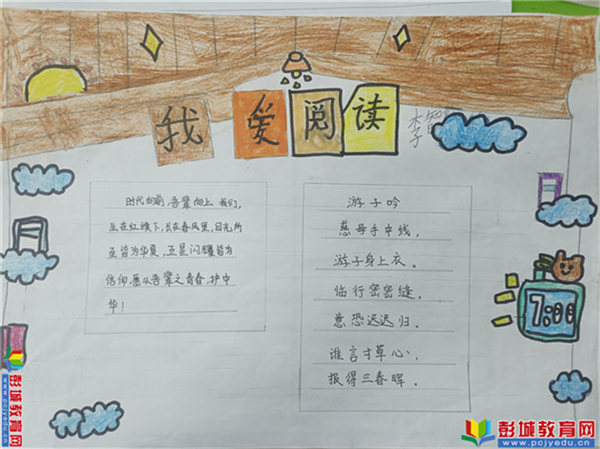 我爱阅读
时代向前,吾辈向上.我们,
生在红旗下,长在春风里,目光所
至皆为华夏,五星闪耀皆为
信仰,愿从吾辈之青春,护中
华!
游子吟
慈母手中线,
游子身上衣。
临行密密缝,
意恐迟迟归.
谁言寸草心,
报得三春晖.
7:00
彭城教育网
www.pcjyedu.cn
彭城教育网
www.pcjyedu.cn